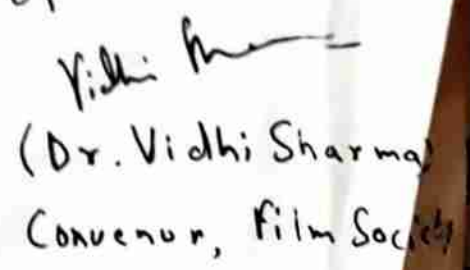 Vidhi
(Dr. Vidhi Sharma)
Convenor, Film Society